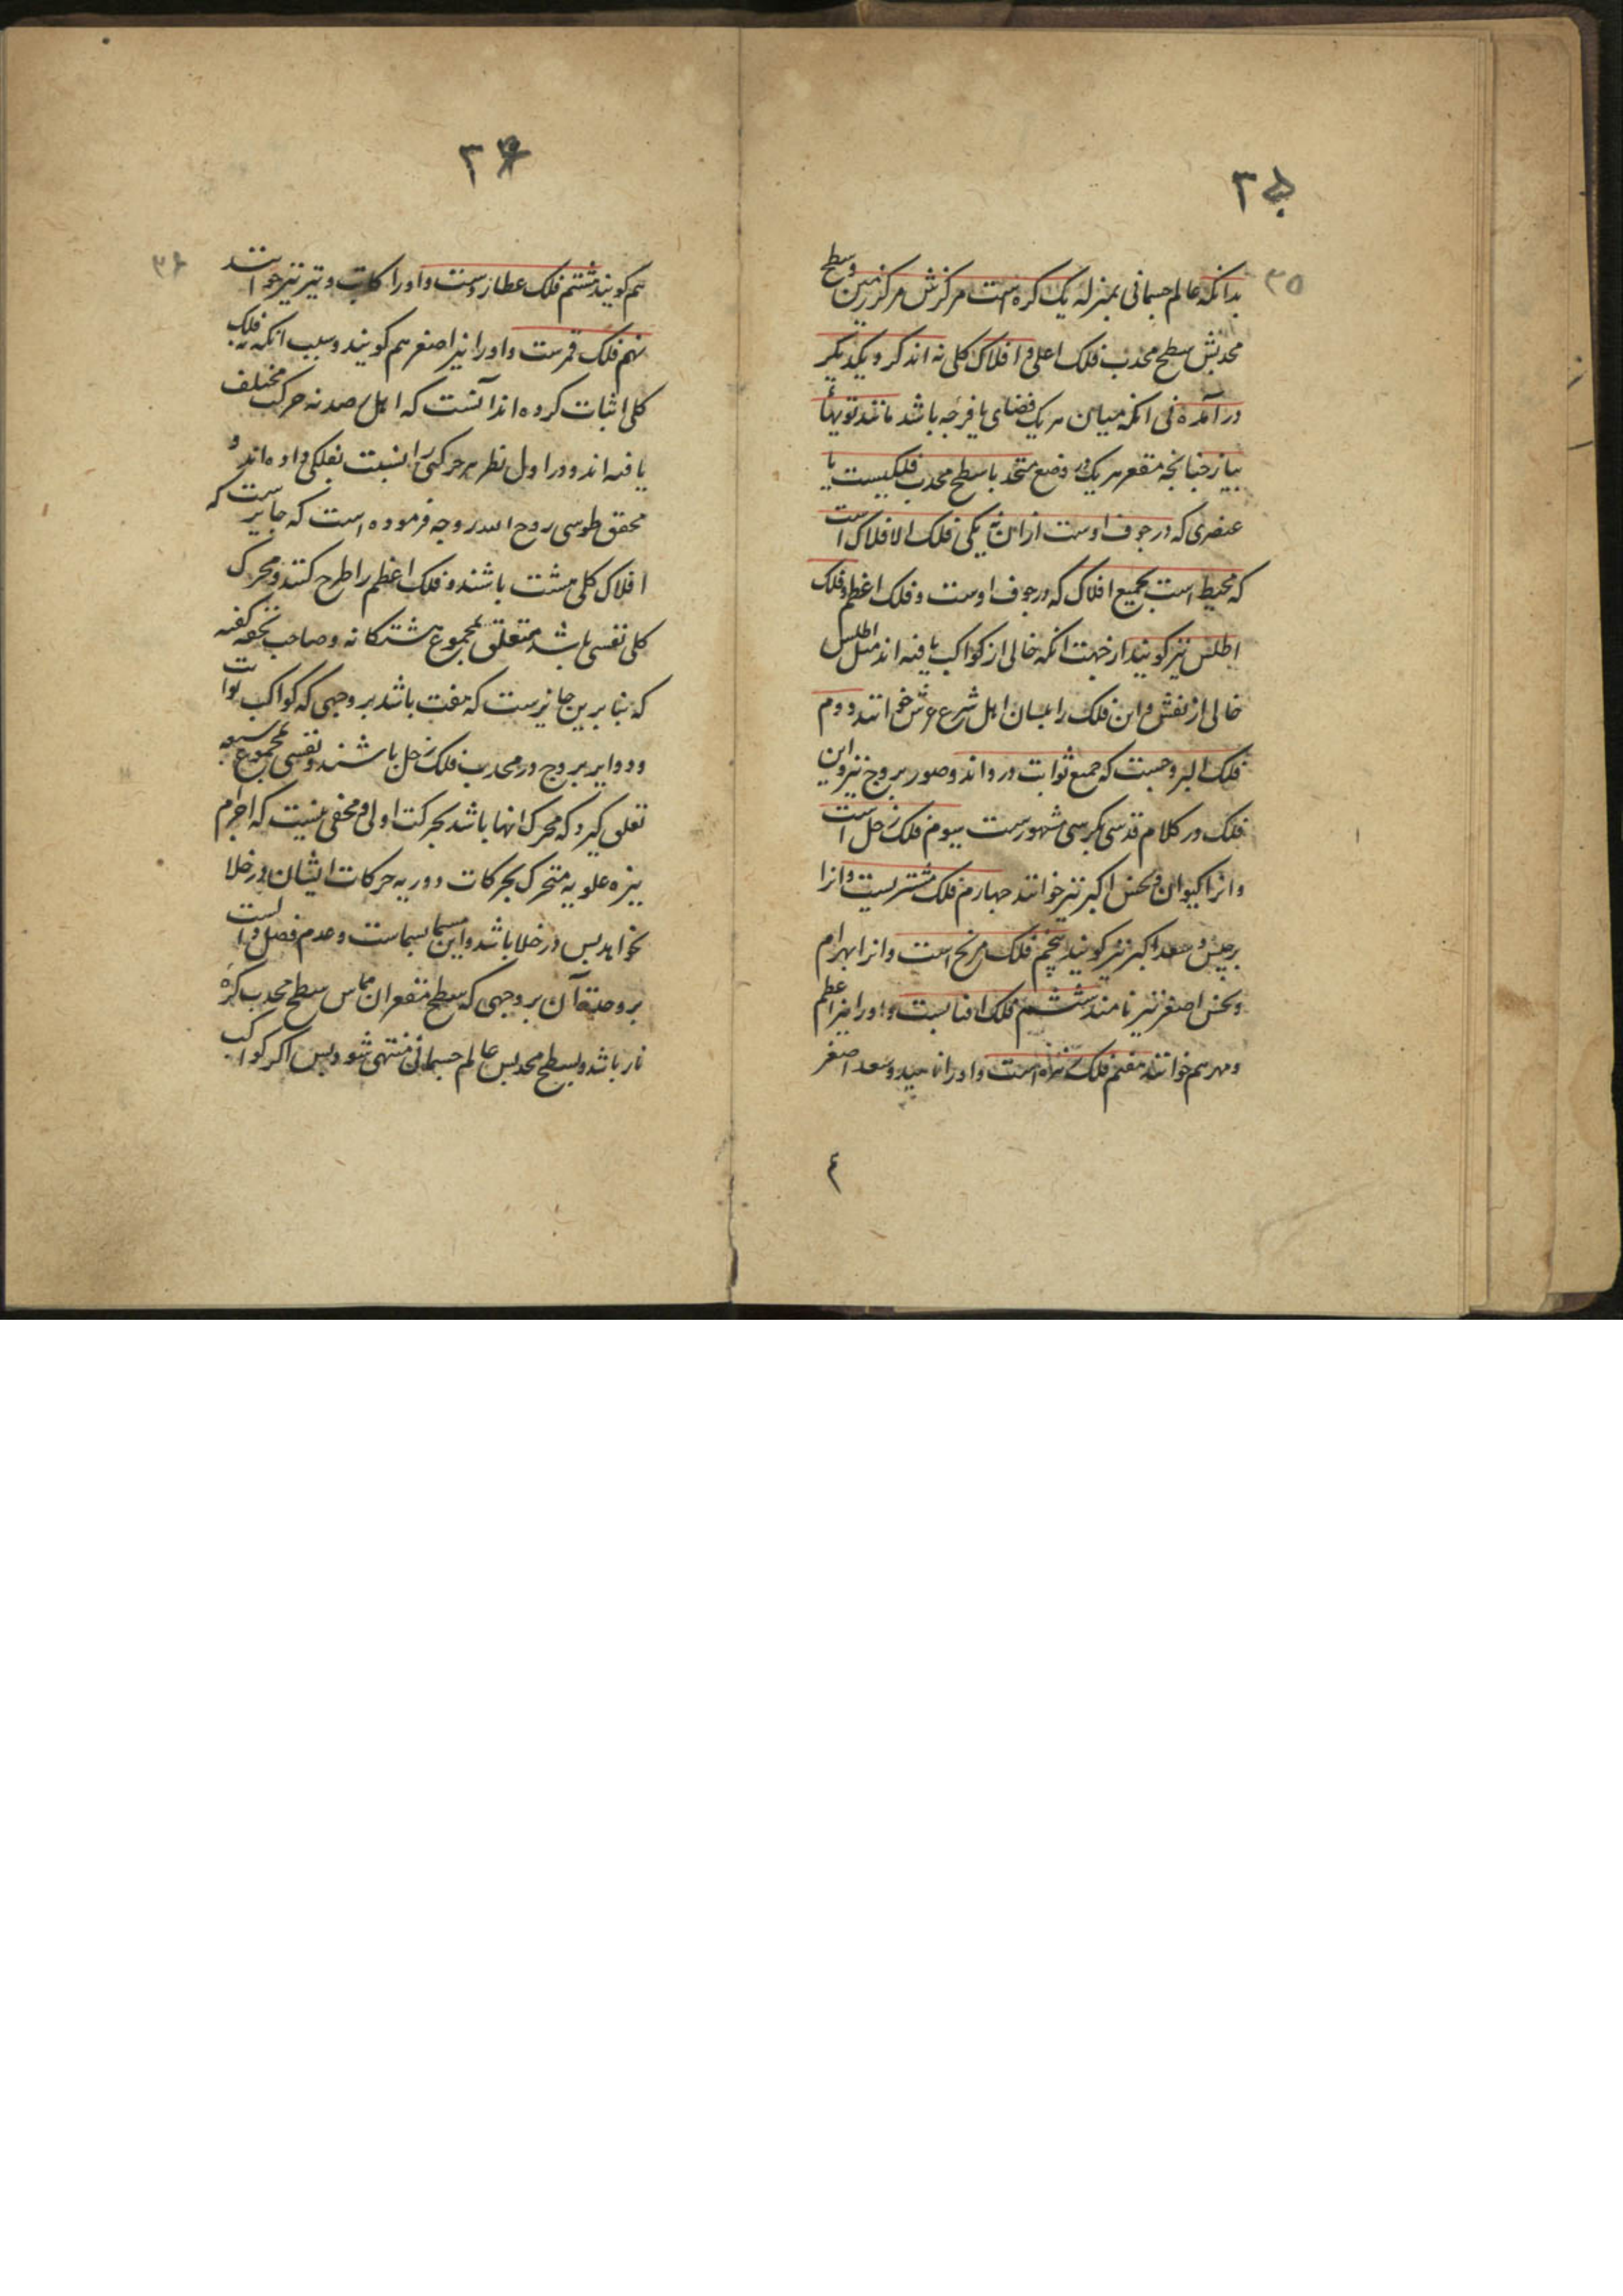 ۳۵
بدانکه عالم جسمانی بمنزله یک کره است مرکزش مرکز زمین و سطح
محدبش سطح محدب فلک اعلی و افلاک کلی نه اند که در یکدیگر
در آمده نی انکه میان هر یک فضای یا فرجه باشد مانند تویهاء
پیاز چنانچه مقعر هر یک در وضع متحد با سطح محدب فلکیست یا
عنصری که در جوف اوست ازان نه یکی فلک الافلاک است
که محیط است بجمیع افلاک که در جوف اوست و فلک اعظم و فلک
اطلس نیز کویند از جهت انکه خالی از کواکب یافته اند مثل اطلس
خالی از نقش و این فلک را بلسان اهل شرع عرش خوانند دوم
فلک البروجست که جمیع ثوابت در واند و صور بروج نیز و این
فلک در کلام قدسی بکرسی مشهورست سیوم فلک زحل است
و انرا کیوان و نحس اکبر نیز خوانند چهارم فلک مشتریست و انرا
برجیس و سعد اکبر نیز کویند پنجم فلک مریخ است و انرا بهرام
و نحس اصغر نیز نامند ششم فلک افتابست و او را نیر اعظم
و مهر هم خوانند هفتم فلک زهره است و او را ناهید و سعد اصغر
۳۶
هم کویند هشتم فلک عطاردست و او را کاتب و تیر نیز خوانند
نهم فلک قمرست و او را نیر اصغر هم کویند و سبب انکه نه فلک
کلی اثبات کرده اند آنست که اهل رصد نه حرکت مختلف
یافته اند و در اول نظر هر حرکتی را نسبت بفلکی داده اند و
محقق طوسی روح الله روحه فرموده است که جایزست که
افلاک کلی هشت باشند و فلک اعظم را طرح کنند و محرک
کلی نفسی باشد متعلق بمجموع هشتکانه و صاحب تحفه کفته
که بنا برین جایزست که هفت باشد بر وجهی که کواکب ثوابت
و دوایر بروج در محدب فلک زحل باشند و نفسی بمجموع سبعه
تعلق کیرد که محرک انها باشد بحرکت اولی و مخفی نیست که اجرام
نیره علویه متحرک بحرکات دوریه حرکات ایشان در خلا
نخواهد پس در خلا باشد و این مسما بسماست و عدم فصل و است
بر وحدة آن بر وجهی که سطح مقعر ان مماس سطح محدب کره
نار باشد و بسطح محدبش عالم جسمانی منتهی شود پس اکر کواکب